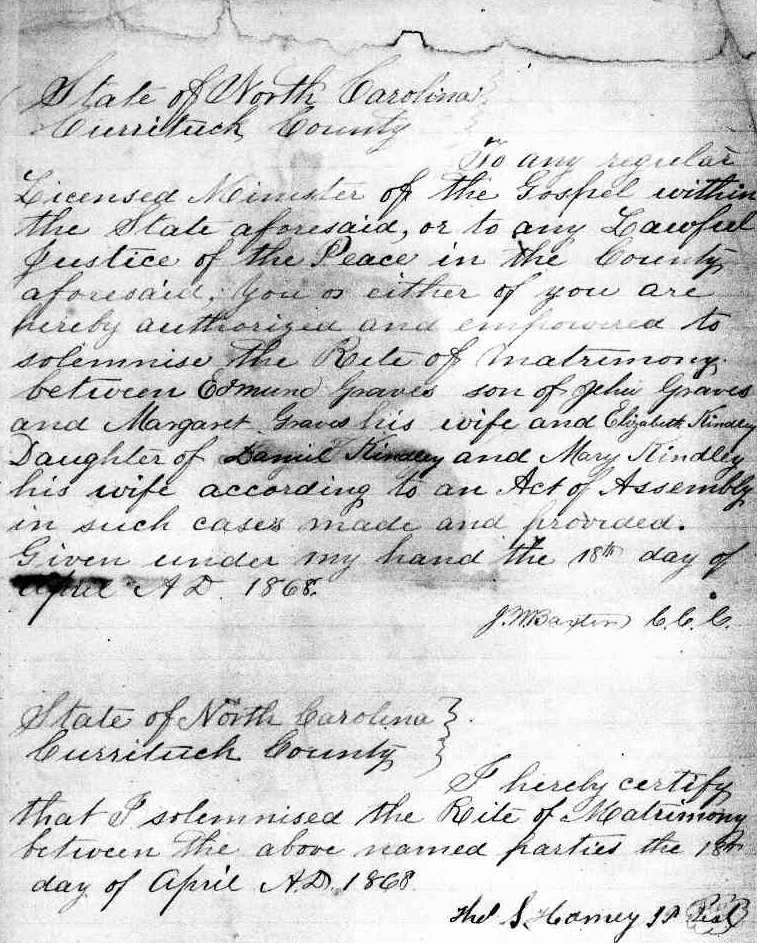 State of North Carolina
Currituck County
To any regular
Licensed Minister of the Gospel within
the State aforesaid, or to any Lawful
Justice of the Peace in the County
aforesaid, you or either of you are
hereby authorized and empowered to
solemnise the Rite of Matrimony
between Edmund Graves son of John Graves
and Margaret Graves his wife and Elizabeth Kindley
Daughter of Daniel Kindley and Mary Kindley
his wife according to an Act of Assembly
in such cases made and provided.
Given under my hand the 18th day of
April A D. 1868.
J. W. Baxter C. C. C.
State of North Carolina }
Currituck County }
I hereby certify
that I solemnised the Rite of Matrimony
between the above named parties the 18th
day of April A.D. 1868
S. JP Seal